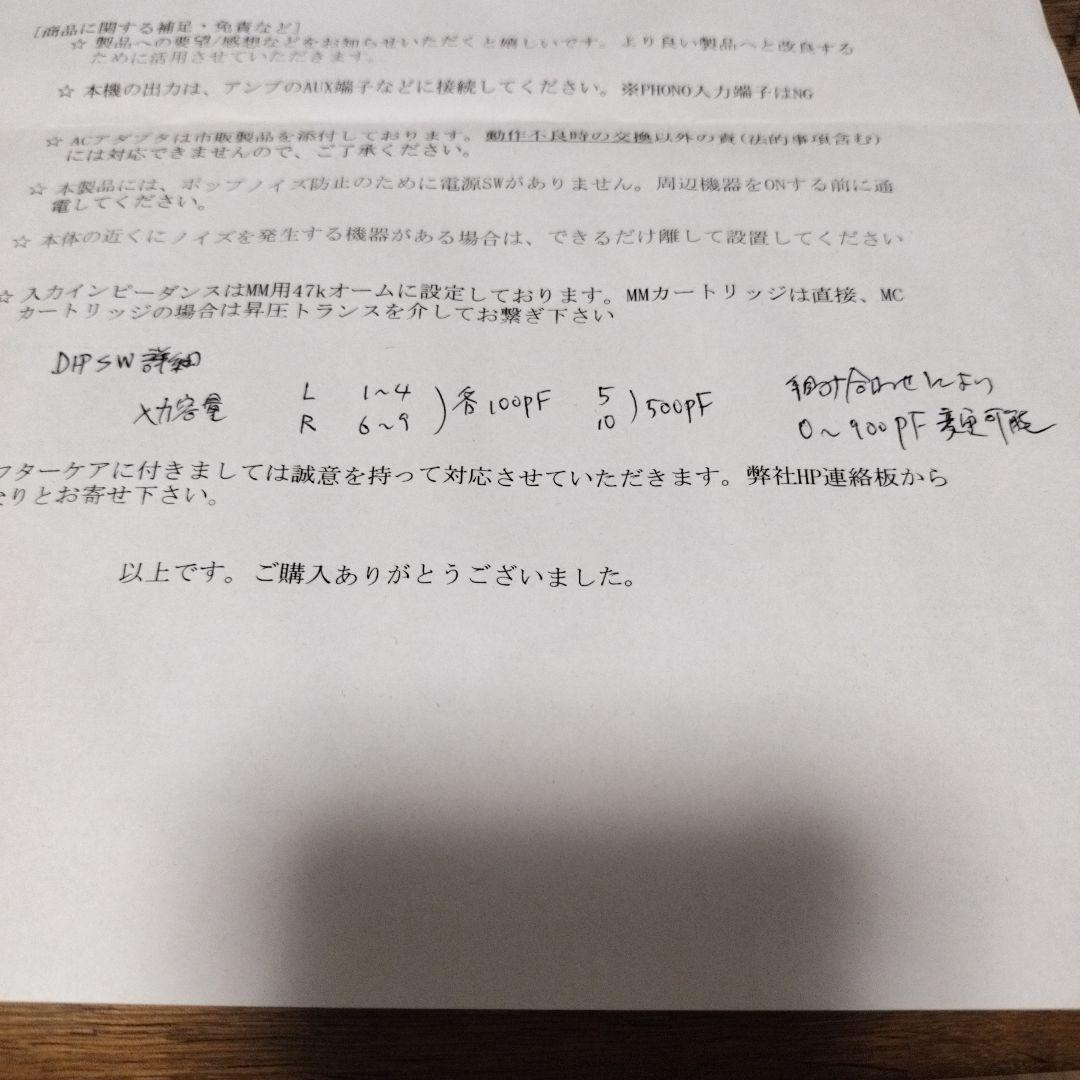 [商品に関する補足・免責など]
☆ 製品への要望/感想などをお知らせいただくと嬉しいです。より良い製品へと改良する
ために活用させていただきます。
☆ 本機の出力は、アンプのAUX端子などに接続してください。※PHONO入力端子はNG
☆ ACアダプタは市販製品を添付しております。動作不良時の交換以外の責(法的事項含む)
には対応できませんので、ご了承ください。
☆ 本製品には、ポップノイズ防止のために電源SWがありません。周辺機器をONする前に通
電してください。
☆ 本体の近くにノイズを発生する機器がある場合は、できるだけ離して設置してください
☆ 入力インピーダンスはMM用47kオームに設定しております。MMカートリッジは直接、MC
カートリッジの場合は昇圧トランスを介してお繋ぎ下さい
DIPSW 詳細
入力容量 L 1~4 R 6~9 ) 各100pF 5 10 ) 500pF 組み合わせにより
0~900pF 変更可能
フターケアに付きましては誠意を持って対応させていただきます。弊社HP連絡板から
なりとお寄せ下さい。
以上です。ご購入ありがとうございました。